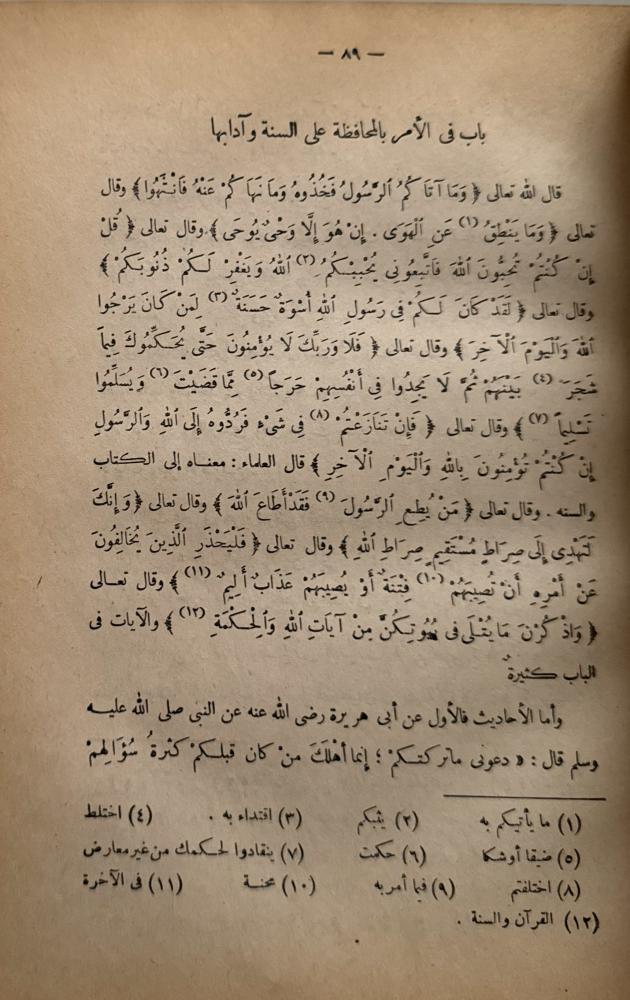 — ٨٩ —
باب فى الأمر بالمحافظة على السنة وآدابها
قال الله تعالى ﴿ وَمَا آتَا كُمُ ٱلرَّسُولُ فَخُذُوهُ وَمَا نَهَا كُمْ عَنْهُ فَانْتَهُوا ﴾ وقال
تعالى ﴿ وَمَا يَنْطِقُ (١) عَنِ ٱلْهَوَى . إِنْ هُوَ إِلَّا وَحْىٌ يُوحَى ﴾ وقال تعالى ﴿ قُلْ
إِنْ كُنْتُمْ تُحِبُّونَ ٱللهَ فَٱتَّبِعُونِى يُحْبِبْكُمُ (٢) ٱللهُ وَيَغْفِرْ لَكُمْ ذُنُوبَكُمْ ﴾
وقال تعالى ﴿ لَقَدْ كَانَ لَكُمْ فِى رَسُولِ ٱللهِ أُسْوَةٌ حَسَنَةٌ (٣) لِمَنْ كَانَ يَرْجُوا
ٱللهَ وَٱلْيَوْمَ ٱلْآخِرَ ﴾ وقال تعالى ﴿ فَلَا وَرَبِّكَ لَا يُؤْمِنُونَ حَتَّى يُحَكِّمُوكَ فِيمَا
شَجَرَ (٤) بَيْنَهُمْ ثُمَّ لَا يَجِدُوا فِى أَنْفُسِهِمْ حَرَجاً (٥) مِمَّا قَضَيْتَ (٦) وَيُسَلِّمُوا
تَسْلِيماً (٧) ﴾ وقال تعالى ﴿ فَإِنْ تَنَازَعْتُمْ (٨) فِى شَىْءٍ فَرُدُّوهُ إِلَى ٱللهِ وَٱلرَّسُولِ
إِنْ كُنْتُمْ تُؤْمِنُونَ بِٱللهِ وَٱلْيَوْمِ ٱلْآخِرِ ﴾ قال العلماء : معناه إلى الكتاب
والسنه . وقال تعالى ﴿ مَنْ يُطِعِ ٱلرَّسُولَ (٩) فَقَدْ أَطَاعَ ٱللهَ ﴾ وقال تعالى ﴿ وَإِنَّكَ
لَتَهْدِى إِلَى صِرَاطٍ مُسْتَقِيمٍ صِرَاطِ ٱللهِ ﴾ وقال تعالى ﴿ فَلْيَحْذَرِ ٱلَّذِينَ يُخَالِفُونَ
عَنْ أَمْرِهِ أَنْ تُصِيبَهُمْ (١٠) فِتْنَةٌ أَوْ يُصِيبَهُمْ عَذَابٌ أَلِيمٌ (١١) ﴾ وقال تعالى
﴿ وَاذْ كُرْنَ مَا يُتْلَى فِى بُيُوتِكُنَّ مِنْ آيَاتِ ٱللهِ وَٱلْحِكْمَةِ (١٢) ﴾ والآيات فى
الباب كثيرةٌ
وأما الأحاديث فالأول عن أبى هريرة رضى الله عنه عن النبى صلى الله عليه
وسلم قال : « دعونى ماتركتكمْ ؛ إنما أَهْلَكَ منْ كان قبلكمْ كثرةُ سُؤَالِهِمْ
(١) ما يأتيكم به (٢) يثبكم (٣) اقتداء به . (٤) اختلط
(٥) ضيقا أوشكا (٦) حكمت (٧) ينقادوا لحكمك من غير معارض
(٨) اختلفتم (٩) فيما أمر به (١٠) محنة (١١) فى الآخرة
(١٢) القرآن والسنة .